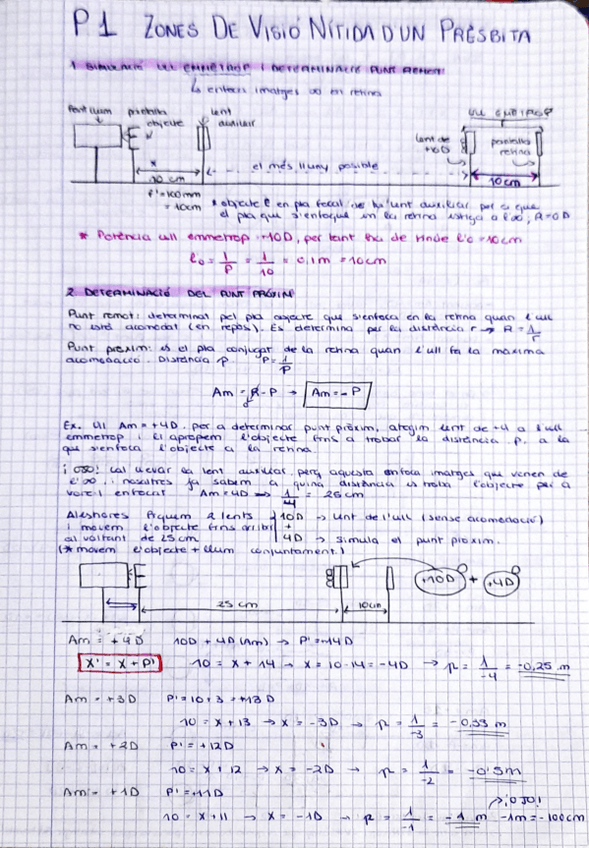 P1 ZONES DE VISIÓ NÍTIDA D'UN PRÈSBITA
1 SIMULACIÓ ULL EMMÈTROP I DETERMINACIÓ PUNT REMOT:
↳ enfoca imatges ∞ en retina
objecte
lent auxiliar
ULL EMÈTROP
lent de +10D
pantalla retina
x
10 cm
el més lluny possible
10cm
f'=100mm
= 10cm
* objecte en pla focal de lent auxiliar per a que
el pla que s'enfoque en la retina estiga a l'∞, R=0D
* Potència ull emmetrop +10D, per tant ha de tindre l'o = 10cm
lo = 1/P = 1/10 = 0,1m = 10cm
2 DETERMINACIÓ DEL PUNT PRÒXIM
Punt remot: determinat pel pla objecte que s'enfoca en la retina quan l'ull
no està acomodat (en repòs). Es determina per la distància r → R = 1/r
Punt pròxim: és el pla conjugat de la retina quan l'ull fa la màxima
acomodació. Distància p P = 1/P
Am = R - P → Am = - P
Ex. Ull Am = +4D. per a determinar punt pròxim, afegim lent de +4 a l'ull
emmetrop i li apropem l'objecte fins a trobar la distància p, a la
que s'enfoca l'objecte a la retina.
¡OJO! cal llevar la lent auxiliar, perq aquesta enfoca imatges que venen de
l'∞ i nosaltres ja sabem a quina distància es troba l'objecte per a
vore'l enfocat Am = 4D → 1/4 = 25 cm
Aleshores fiquem 2 lents 10D → lent de l'ull (sense acomodació)
i movem l'objecte fins arribar +
al voltant de 25 cm 4D → simula el punt pròxim.
(* movem l'objecte + llum conjuntament.)
+10D + +4D
25 cm
10cm
Am = +4D 10D + 4D (Am) → P' = 14D
X' = X + P' 10 = x + 14 → x = 10-14 = -4D → p = 1/-4 = -0,25 m
Am = +3D P' = 10+3 = +13D
10 = x + 13 → x = -3D → p = 1/-3 = -0,33 m
Am = +2D P' = +12D
10 = x + 12 → x = -2D → p = 1/-2 = -0'5m
Am = +1D P' = +11D → ¡OJO!
10 = x + 11 → x = -1D → p = 1/-1 = -1 m -1m = -100cm